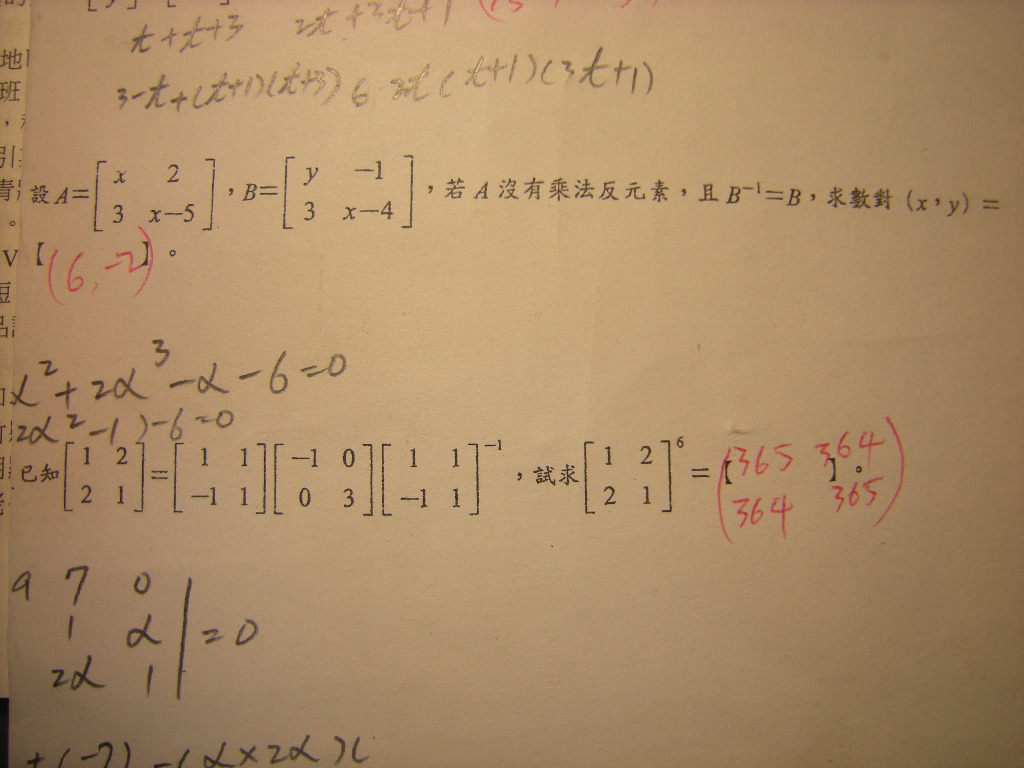 t+t+3 2t+3t+1
3-t+(t+1)(t+3) 6 2t(t+1)(3t+1)
設A=[x 2; 3 x−5],B=[y −1; 3 x−4],若A沒有乘法反元素,且B⁻¹=B,求數對(x,y)=
【(6,-2)】。
α²+2α³-α-6=0
2α²-1)-6=0
已知[1 2; 2 1]=[1 1; −1 1][−1 0; 0 3][1 1; −1 1]⁻¹,試求[1 2; 2 1]⁶=【(365 364; 364 365)】。
9 7 0
1 α =0
2α 1
+(-7)-(α×2α)(